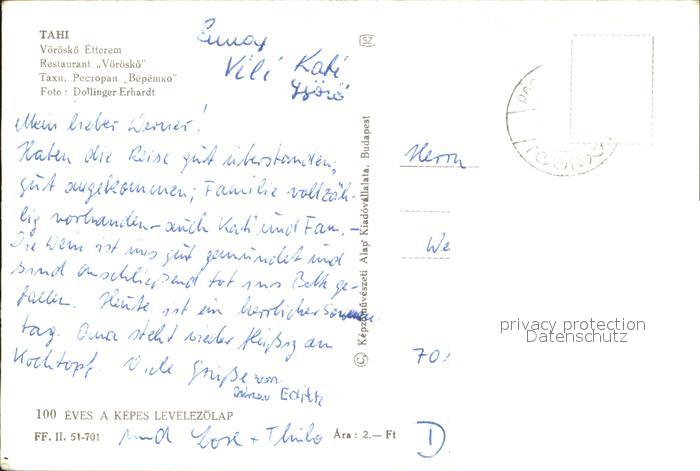 TAHI
Vöröskő Étterem
Restaurant „Vöröskő"
Тахи. Ресторан „Вёрёшко"
Foto : Dollinger Erhardt
Vili Kati
Győző
SZ
Mein lieber Werner!
Haben die Reise gut überstanden,
gut angekommen; Familie vollzäh-
lig vorhanden – auch Kati und Fam. –
Die Wein ist uns gut gemundet und
sind anschließend tot ins Bett ge-
fallen. Heute ist ein herrlicher Sonnen-
tag. Oma steht wieder fleißig am
Kochtopf. Viele Grüße von
Edith
und Lore + Thilo
100 ÉVES A KÉPES LEVELEZŐLAP
FF. II. 51-701
Ára : 2,— Ft
© Képzőművészeti Alap Kiadóvállalata, Budapest
Herrn
We
70
D
privacy protection
Datenschutz